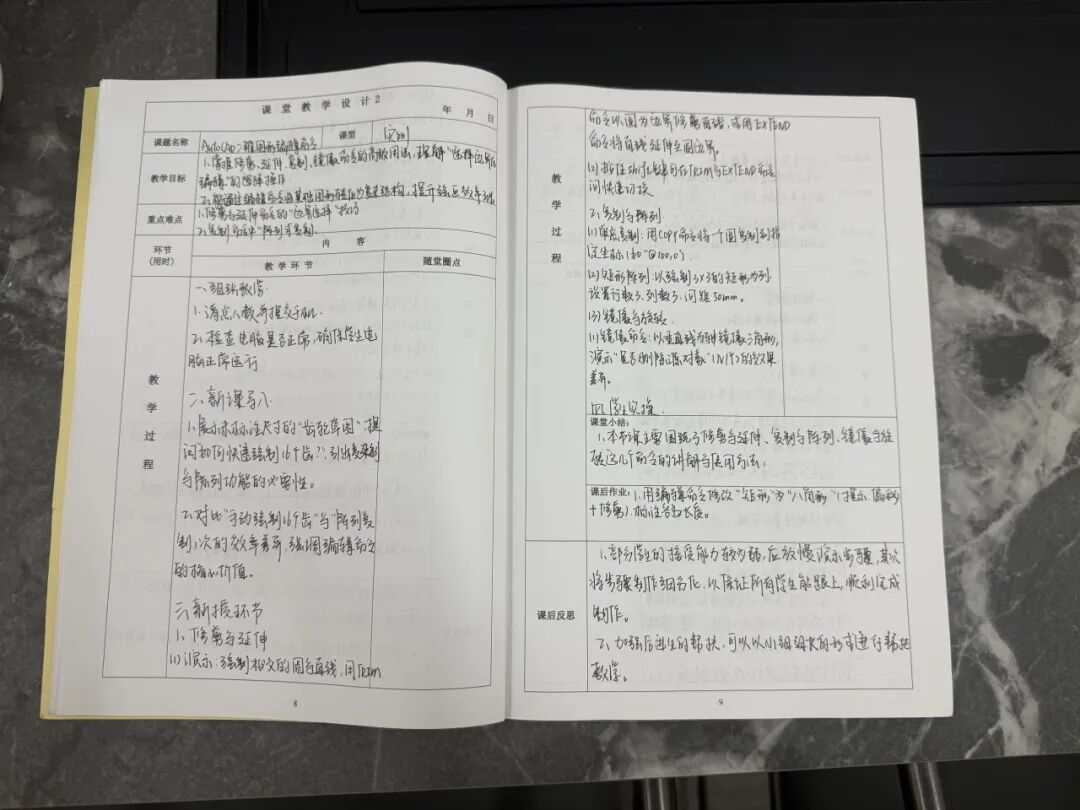 课堂教学设计2
年 月 日
课题名称 AutoCAD二维图形编辑命令 课型 实训
教学目标
1.掌握修剪、延伸、复制、镜像命令的高级用法,理解"选择边界
编辑"的逻辑操作。
2.能通过编辑命令将基础图形转化为复杂结构,提升绘图效率
重点难点
1.修剪与延伸命令的"边界选择"技巧
2.复制命令中"阵列式复制。
环节
(用时)
内 容
教学环节 随堂圈点
教学过程
一、组织教学
1.清点人数并提交手机.
2.检查电脑是否正常,确保学生电
脑正常运行
二、新课导入
1.展示未标注尺寸的"齿轮草图"提
问"如何快速绘制16个齿?",引出复制
与阵列功能的必要性。
2.对比"手动绘制16个齿"与"阵列复
制1次的效率差异,强调编辑命令
的核心价值。
三、新授环节
1、修剪与延伸
(1)演示:绘制相交的圆与直线,用TRIM
8
教学过程
命令以圆为边界修剪直线,或用EXTEND
命令将直线延伸至圆边界。
(2)按住shift键可在TRIM与EXTEND命令
间快速切换
2、复制与阵列
(1)单点复制:用COPY命令将一个圆复制到指
定坐标(如"@100,0")
(2)矩形阵列:以绘制3×3的矩形为例
设置行数3、列数3、间距50mm。
(3)镜像与旋转
(1)镜像命令:以垂直线为轴镜像三角形,
演示"是否删除源对象"(N/Y)的效果
差异。
四、学生实操.
课堂小结:
1.本节课主要围绕了修剪与延伸、复制与阵列、镜像与旋
转这几个命令的讲解与使用方法.
课后作业:1.用编辑命令修改"矩形"为"八角形"(提示:偏移
+修剪),标注各边长度。
课后反思
1.部分学生的接受能力较为弱,应放慢演示步骤,其次
将步骤制作细为化,以保证所有学生能跟上,顺利完成
制作。
2、加强后进生的帮扶,可以以小组组长的形式进行帮扶
教学。
9